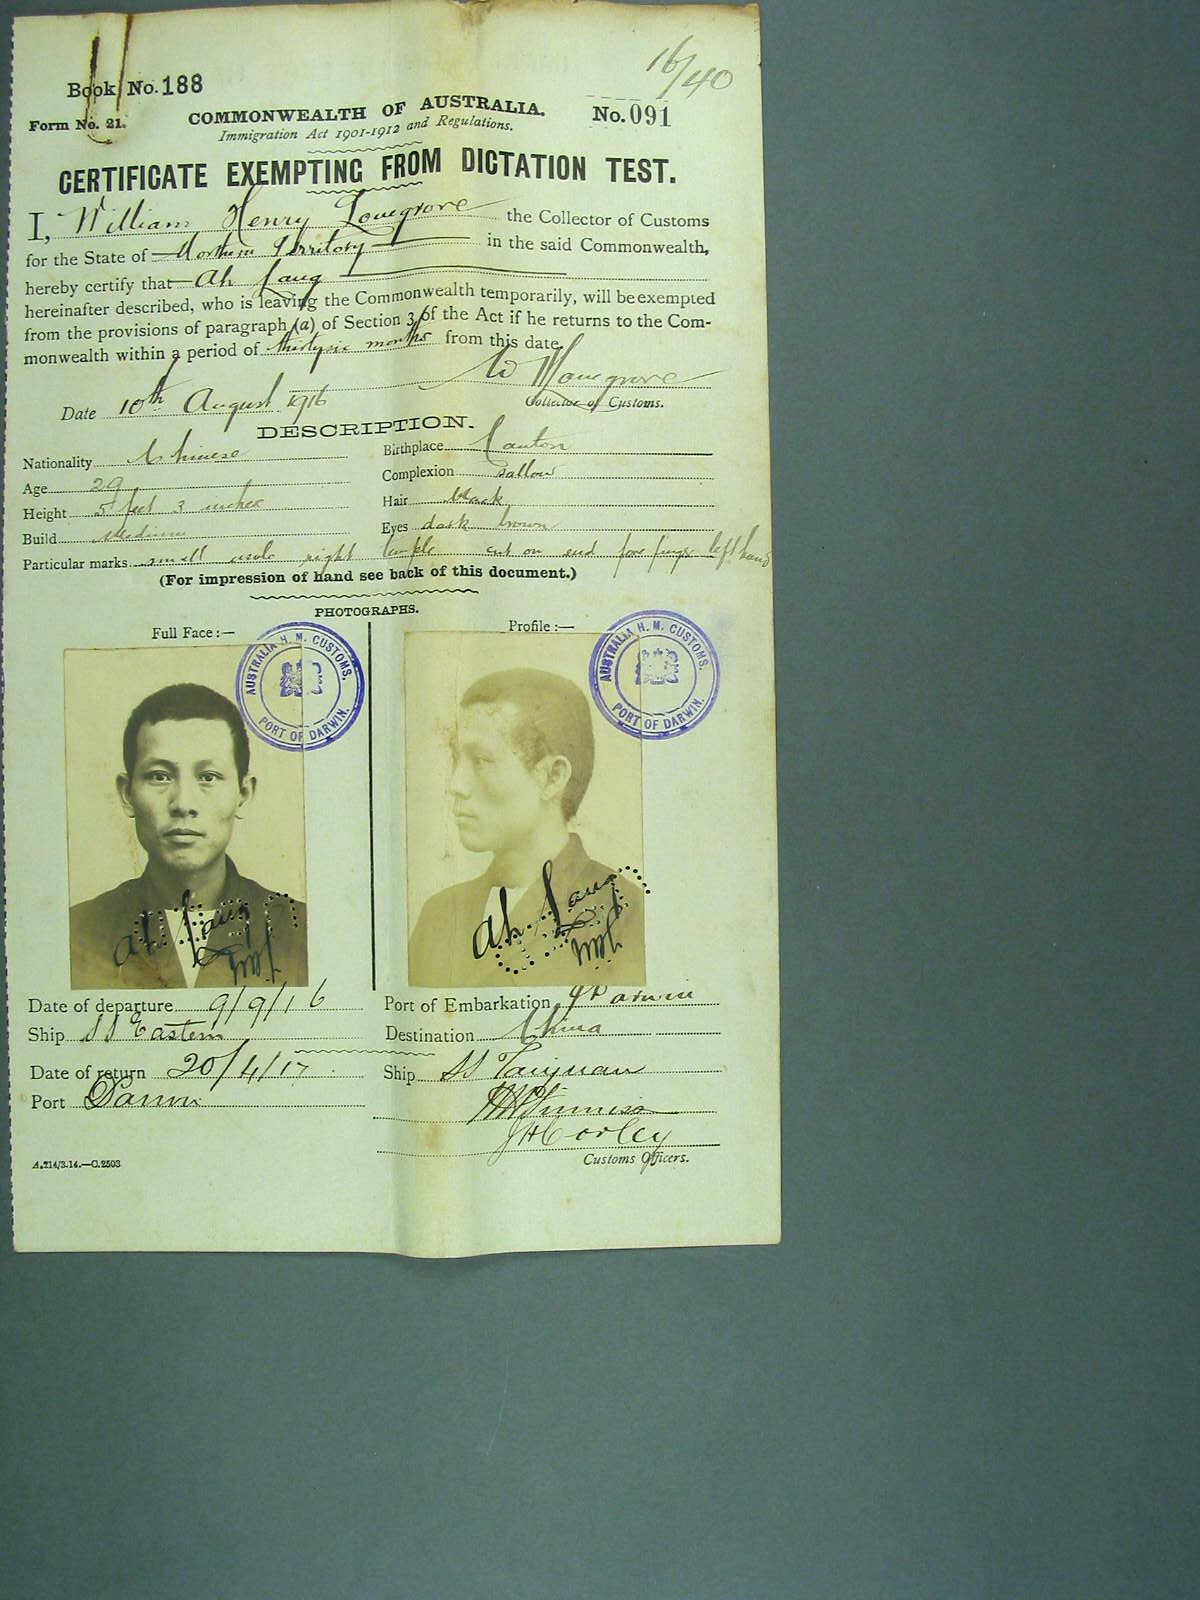 16/40
Book No. 188
Form No. 21.
COMMONWEALTH OF AUSTRALIA.
No. 091
Immigration Act 1901-1912 and Regulations.
CERTIFICATE EXEMPTING FROM DICTATION TEST.
I, William Henry Lovegrove the Collector of Customs
for the State of Northern Territory in the said Commonwealth,
hereby certify that Ah Lang
hereinafter described, who is leaving the Commonwealth temporarily, will be exempted
from the provisions of paragraph (a) of Section 3 of the Act if he returns to the Com-
monwealth within a period of thirtysix months from this date.
W Lovegrove
Date 10th August 1916
Collector of Customs.
DESCRIPTION.
Nationality Chinese
Birthplace Canton
Age 29
Complexion Sallow
Height 5 feet 3 inches
Hair black
Build Medium
Eyes dark brown
Particular marks small right temple cut on end fore finger left hand
(For impression of hand see back of this document.)
PHOTOGRAPHS.
Full Face :—
Profile :—
AUSTRALIA H. M. CUSTOMS.
PORT OF DARWIN.
AUSTRALIA H. M. CUSTOMS.
PORT OF DARWIN.
Ah Lang
Ah Lang
Date of departure 9/9/16
Port of Embarkation Darwin
Ship SS Eastern
Destination China
Date of return 20/4/17
Ship SS Taiyuan
Port Darwin
JHCorley
Customs Officers.
A.214/3.14.—C.2503